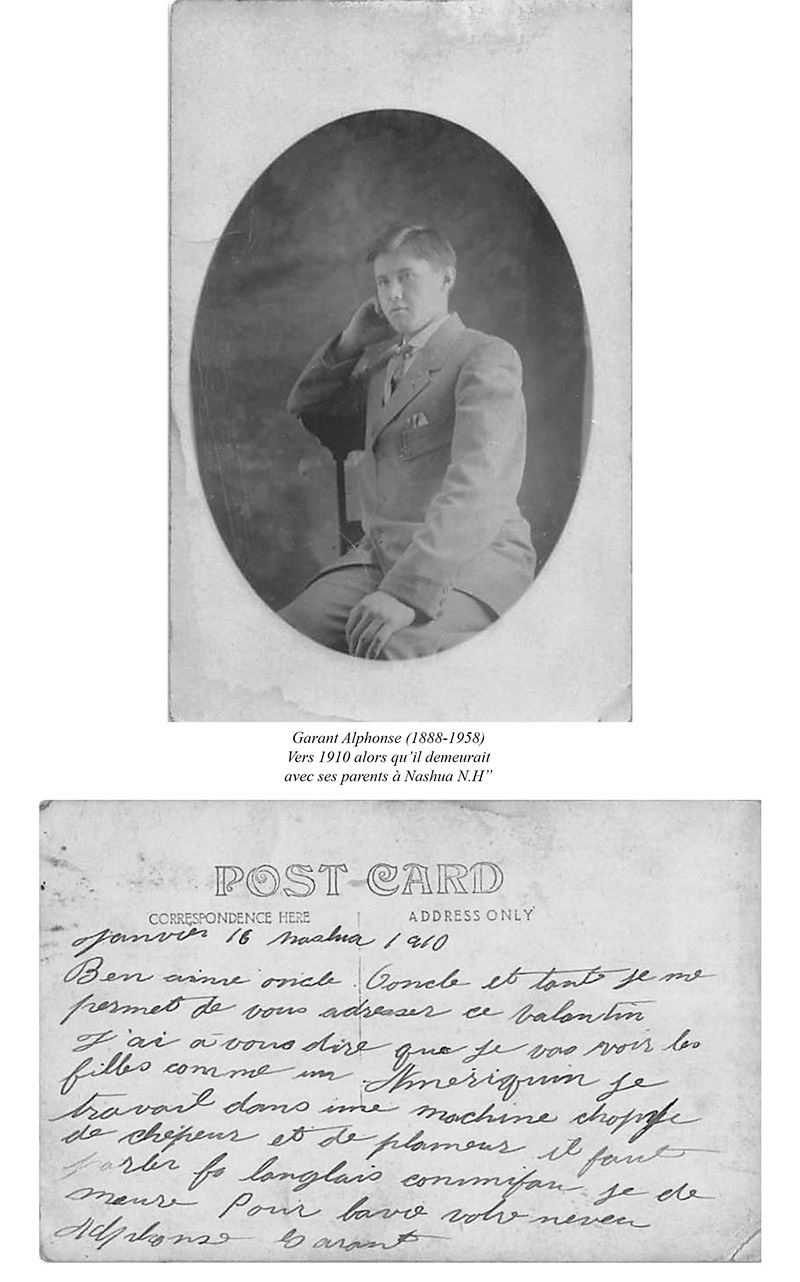 Garant Alphonse (1888-1958)
Vers 1910 alors qu'il demeurait
avec ses parents à Nashua N.H"
POST CARD
CORRESPONDENCE HERE
ADDRESS ONLY
Janvier 16 Nashua 1910
Ben aimé oncle. Ooncle et tante je me
permet de vous adresser ce valantin
J'ai a vous dire que je vas voir les
filles comme un Ameriquin je
travail dans une machine choppe
de chépeur et de plameur il faut
parler langlais commifau je de
meure Pour lavie votre neveu
Adphonse Garant